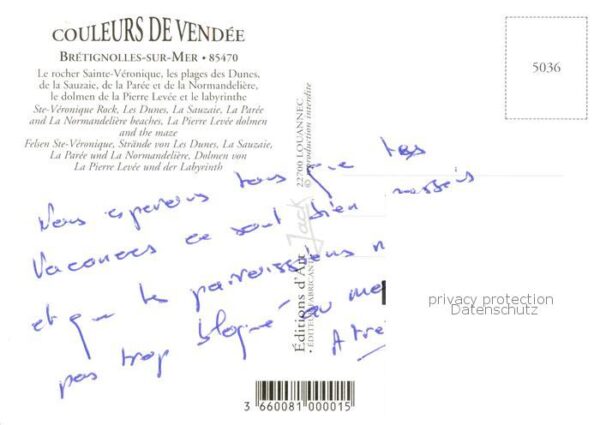 COULEURS DE VENDÉE
BRÉTIGNOLLES-SUR-MER • 85470
Le rocher Sainte-Véronique, les plages des Dunes,
de la Sauzaie, de la Parée et de la Normandelière,
le dolmen de la Pierre Levée et le labyrinthe
Ste-Véronique Rock, Les Dunes, La Sauzaie, La Parée
and La Normandelière beaches, La Pierre Levée dolmen
and the maze
Felsen Ste-Véronique, Strände von Les Dunes, La Sauzaie,
La Parée und La Normandelière, Dolmen von
La Pierre Levée und der Labyrinth
5036
22700 LOUANNEC
© reproduction interdite
Jack
Editions d'Art
• ÉDITEUR FABRICANT
Nous espérons tous que tes
vacances se sont bien passées
et que le
pas trop bloqué au
A
privacy protection
Datenschutz
3 660081 000015